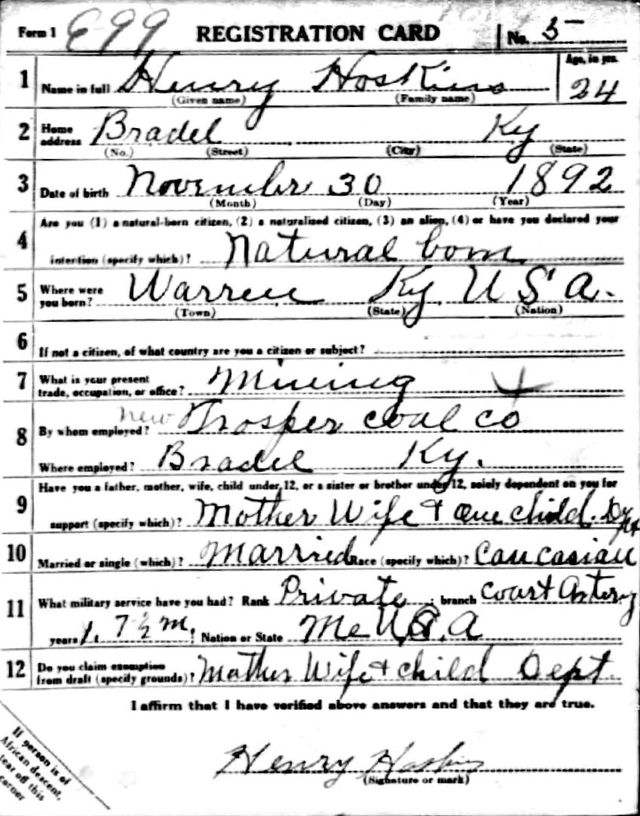 Form 1 E99 REGISTRATION CARD No. 5
1 Name in full Henry Hoskins Age, in yrs. 24
(Given name) (Family name)
2 Home address Bradel Ky
(No.) (Street) (City) (State)
3 Date of birth November 30 1892
(Month) (Day) (Year)
4 Are you (1) a natural-born citizen, (2) a naturalized citizen, (3) an alien, (4) or have you declared your
intention (specify which)? Natural born
5 Where were you born? Warren Ky U S A.
(Town) (State) (Nation)
6 If not a citizen, of what country are you a citizen or subject?
7 What is your present trade, occupation, or office? Mining
8 By whom employed? new Trosper coal co
Where employed? Bradel Ky.
9 Have you a father, mother, wife, child under 12, or a sister or brother under 12, solely dependent on you for
support (specify which)? Mother Wife + one child.
10 Married or single (which)? Married Race (specify which)? Caucasian
11 What military service have you had? Rank Private ; branch
years 1. 7½ m ; Nation or State U.S.A
12 Do you claim exemption from draft (specify grounds)? Mother Wife + child Dept.
I affirm that I have verified above answers and that they are true.
Henry Hoskins
(Signature or mark)
If person is of
African descent,
tear off this
corner